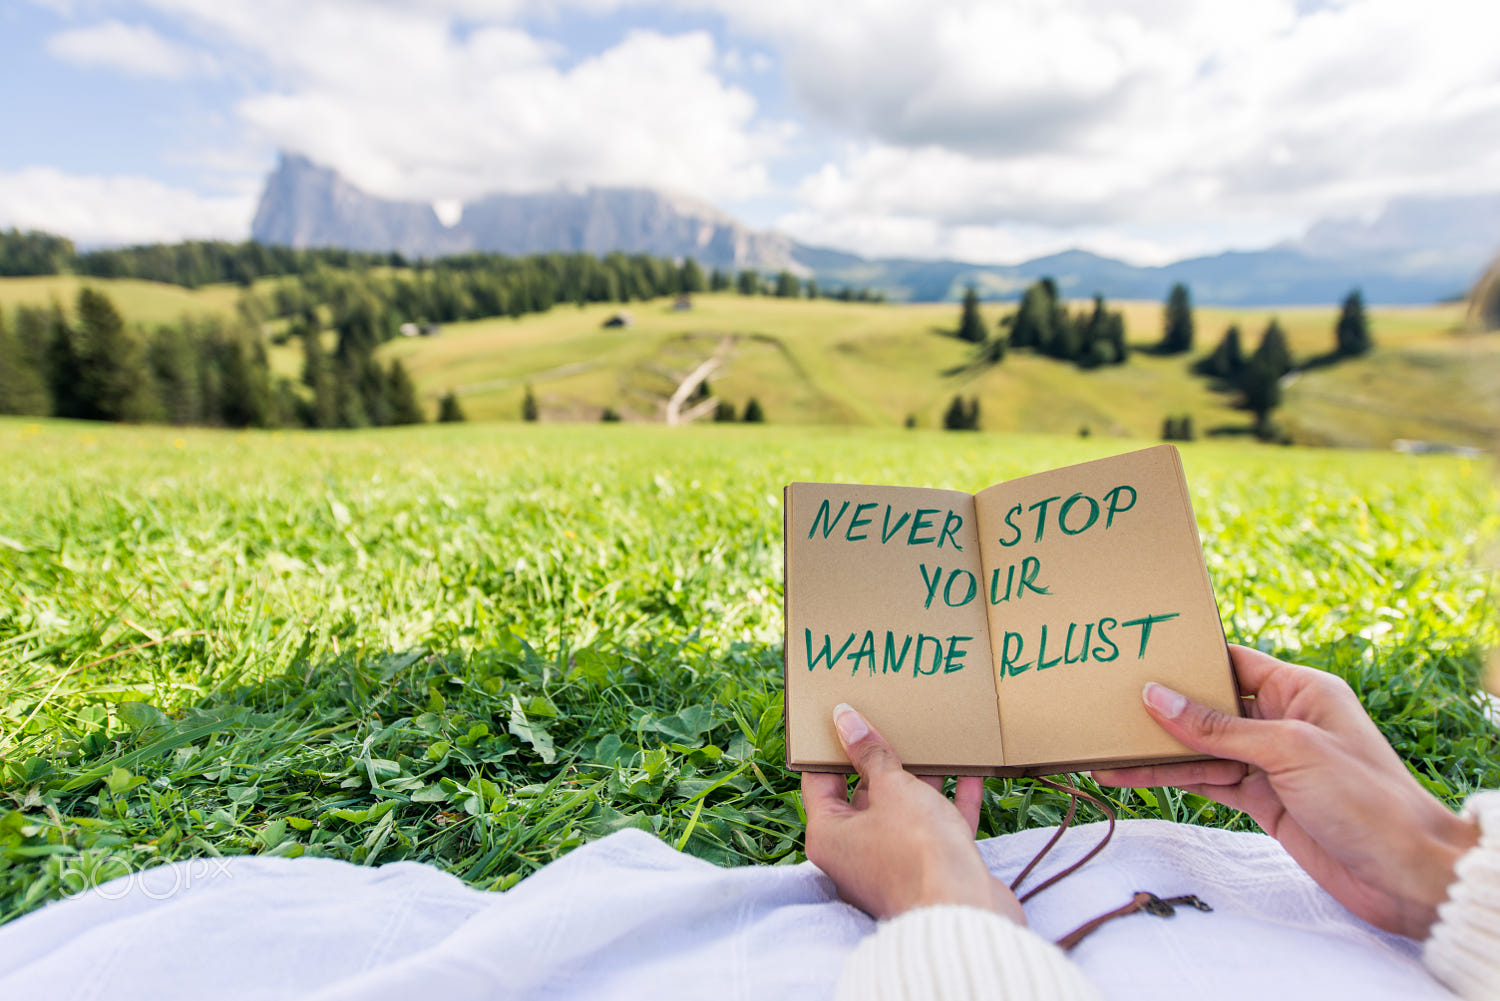 NEVER STOP
YOUR
WANDERLUST
500px